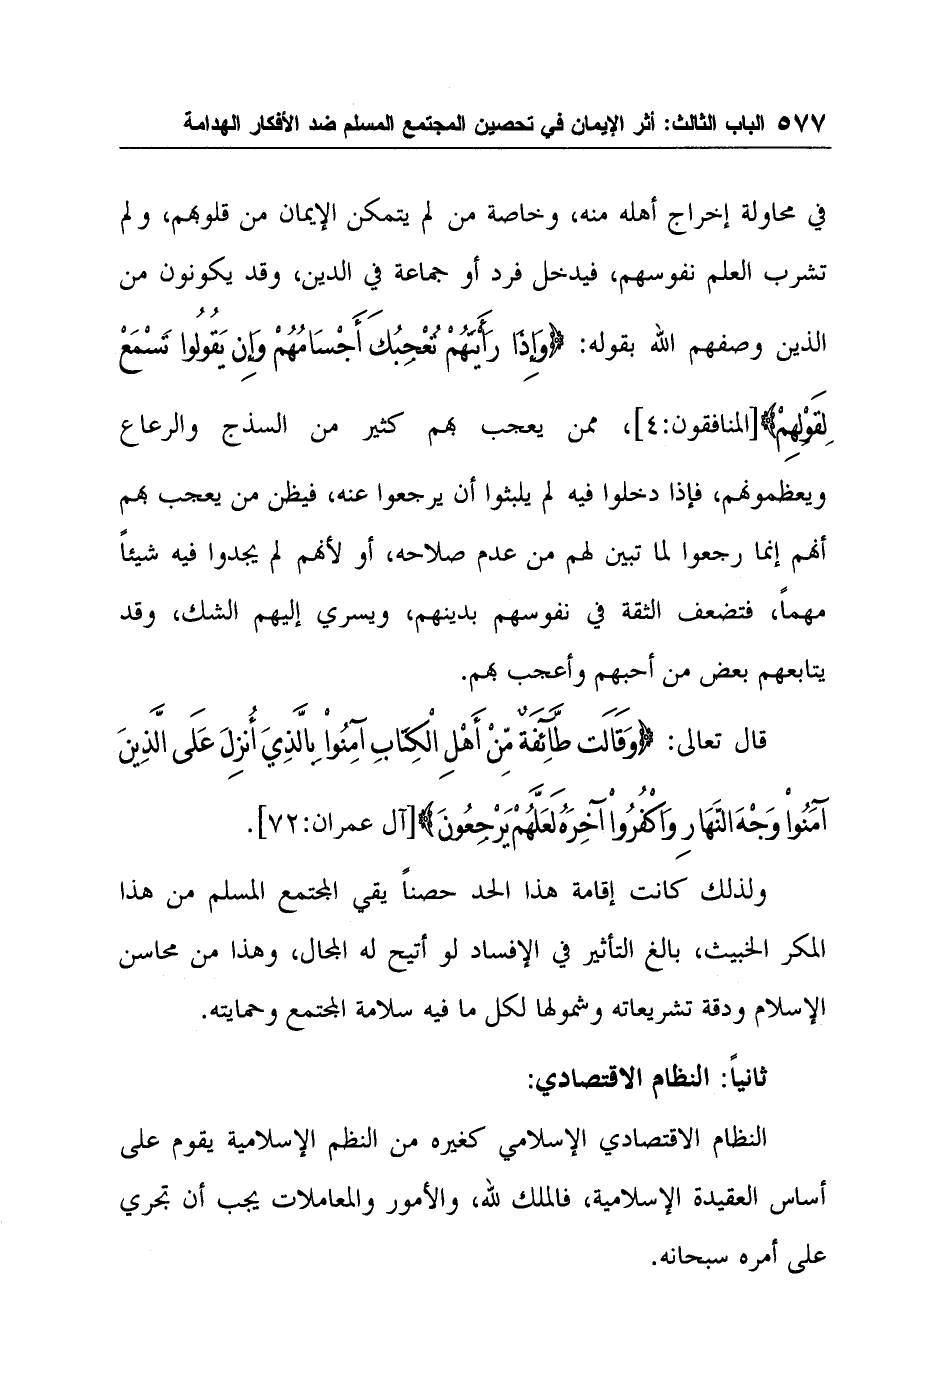 ٥٧٧ الباب الثالث: أثر الإيمان في تحصين المجتمع المسلم ضد الأفكار الهدامة
في محاولة إخراج أهله منه، وخاصة من لم يتمكن الإيمان من قلوبهم، ولم
تشرب العلم نفوسهم، فيدخل فرد أو جماعة في الدين، وقد يكونون من
الذين وصفهم الله بقوله: ﴿وَإِذَا رَأَيْتَهُمْ تُعْجِبُكَ أَجْسَامُهُمْ وَإِن يَقُولُوا تَسْمَعْ
لِقَوْلِهِمْ﴾[المنافقون:٤]، ممن يعجب بهم كثير من السذج والرعاع
ويعظمونهم، فإذا دخلوا فيه لم يلبثوا أن يرجعوا عنه، فيظن من يعجب بهم
أنهم إنما رجعوا لما تبين لهم من عدم صلاحه، أو لأنهم لم يجدوا فيه شيئاً
مهماً، فتضعف الثقة في نفوسهم بدينهم، ويسري إليهم الشك، وقد
يتابعهم بعض من أحبهم وأعجب بهم.
قال تعالى: ﴿وَقَالَت طَّآئِفَةٌ مِّنْ أَهْلِ الْكِتَابِ آمِنُواْ بِالَّذِيَ أُنزِلَ عَلَى الَّذِينَ
آمَنُواْ وَجْهَ النَّهَارِ وَاكْفُرُواْ آخِرَهُ لَعَلَّهُمْ يَرْجِعُونَ﴾[آل عمران:٧٢].
ولذلك كانت إقامة هذا الحد حصناً يقي المجتمع المسلم من هذا
المكر الخبيث، بالغ التأثير في الإفساد لو أتيح له المجال، وهذا من محاسن
الإسلام ودقة تشريعاته وشمولها لكل ما فيه سلامة المجتمع وحمايته.
ثانياً: النظام الاقتصادي:
النظام الاقتصادي الإسلامي كغيره من النظم الإسلامية يقوم على
أساس العقيدة الإسلامية، فالملك لله، والأمور والمعاملات يجب أن تجري
على أمره سبحانه.